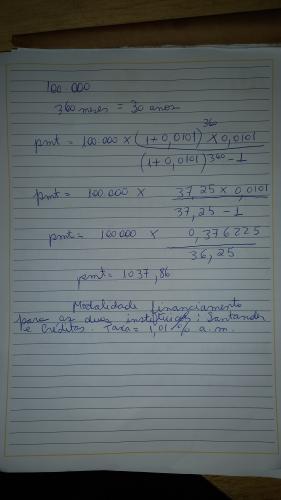 100.000
360 meses = 30 anos
pmt = 100.000 × (1+0,0101)^360 × 0,0101
(1+0,0101)^360 - 1
pmt = 100.000 × 37,25 × 0,0101
37,25 - 1
pmt = 100.000 × 0,376225
36,25
pmt = 1037,86
Modalidade financiamento
para as duas instituições: Santander
e Creditas. Taxa = 1,01% a.m.